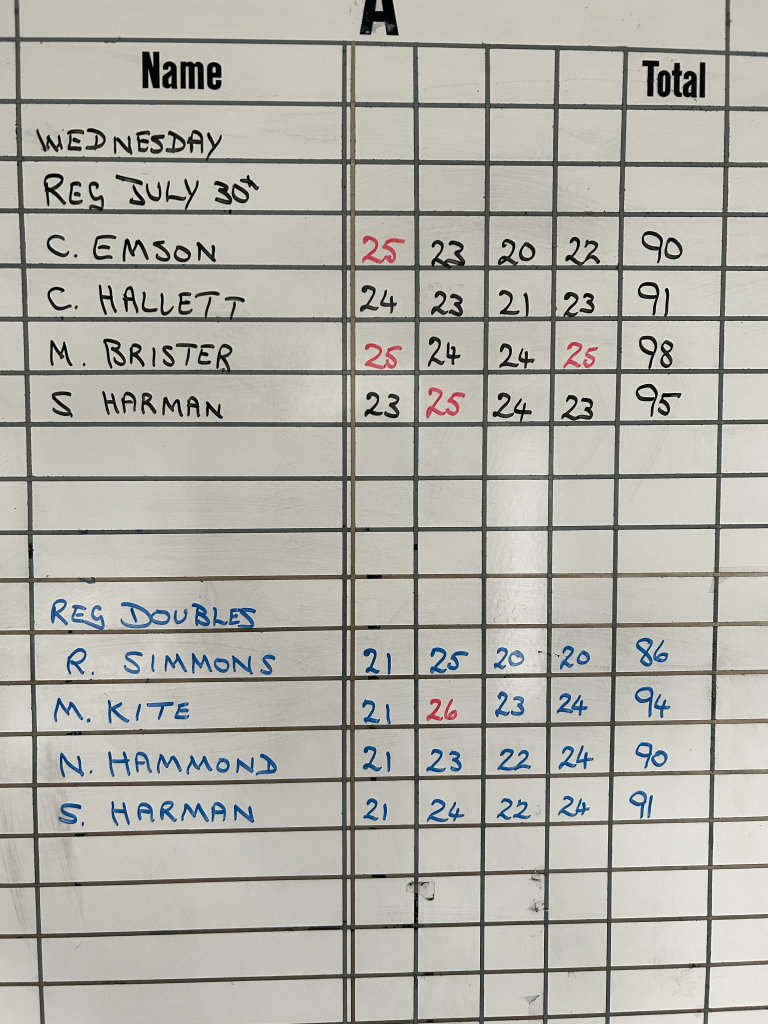 A
Name Total
WEDNESDAY
REG JULY 30th
C. EMSON 25 23 20 22 90
C. HALLETT 24 23 21 23 91
M. BRISTER 25 24 24 25 98
S HARMAN 23 25 24 23 95
REG DOUBLES
R. SIMMONS 21 25 20 20 86
M. KITE 21 26 23 24 94
N. HAMMOND 21 23 22 24 90
S. HARMAN 21 24 22 24 91